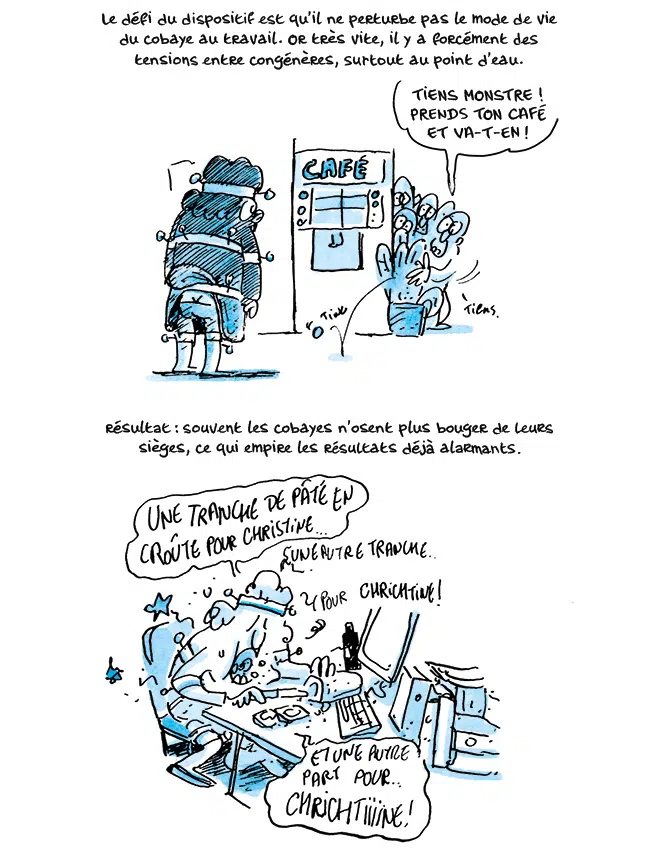 Le défi du dispositif est qu'il ne perturbe pas le mode de vie
du cobaye au travail. Or très vite, il y a forcément des
tensions entre congénères, surtout au point d'eau.
TIENS MONSTRE !
PRENDS TON CAFÉ
ET VA-T-EN !
CAFÉ
Tink
Tiens.
Résultat : souvent les cobayes n'osent plus bouger de leurs
sièges, ce qui empire les résultats déjà alarmants.
UNE TRANCHE DE PÂTÉ EN
CROÛTE POUR CHRISTINE...
UNE AUTRE TRANCHE..
POUR CHRICHTINE!
ET UNE AUTRE
PART POUR...
CHRICHTIIIINE!